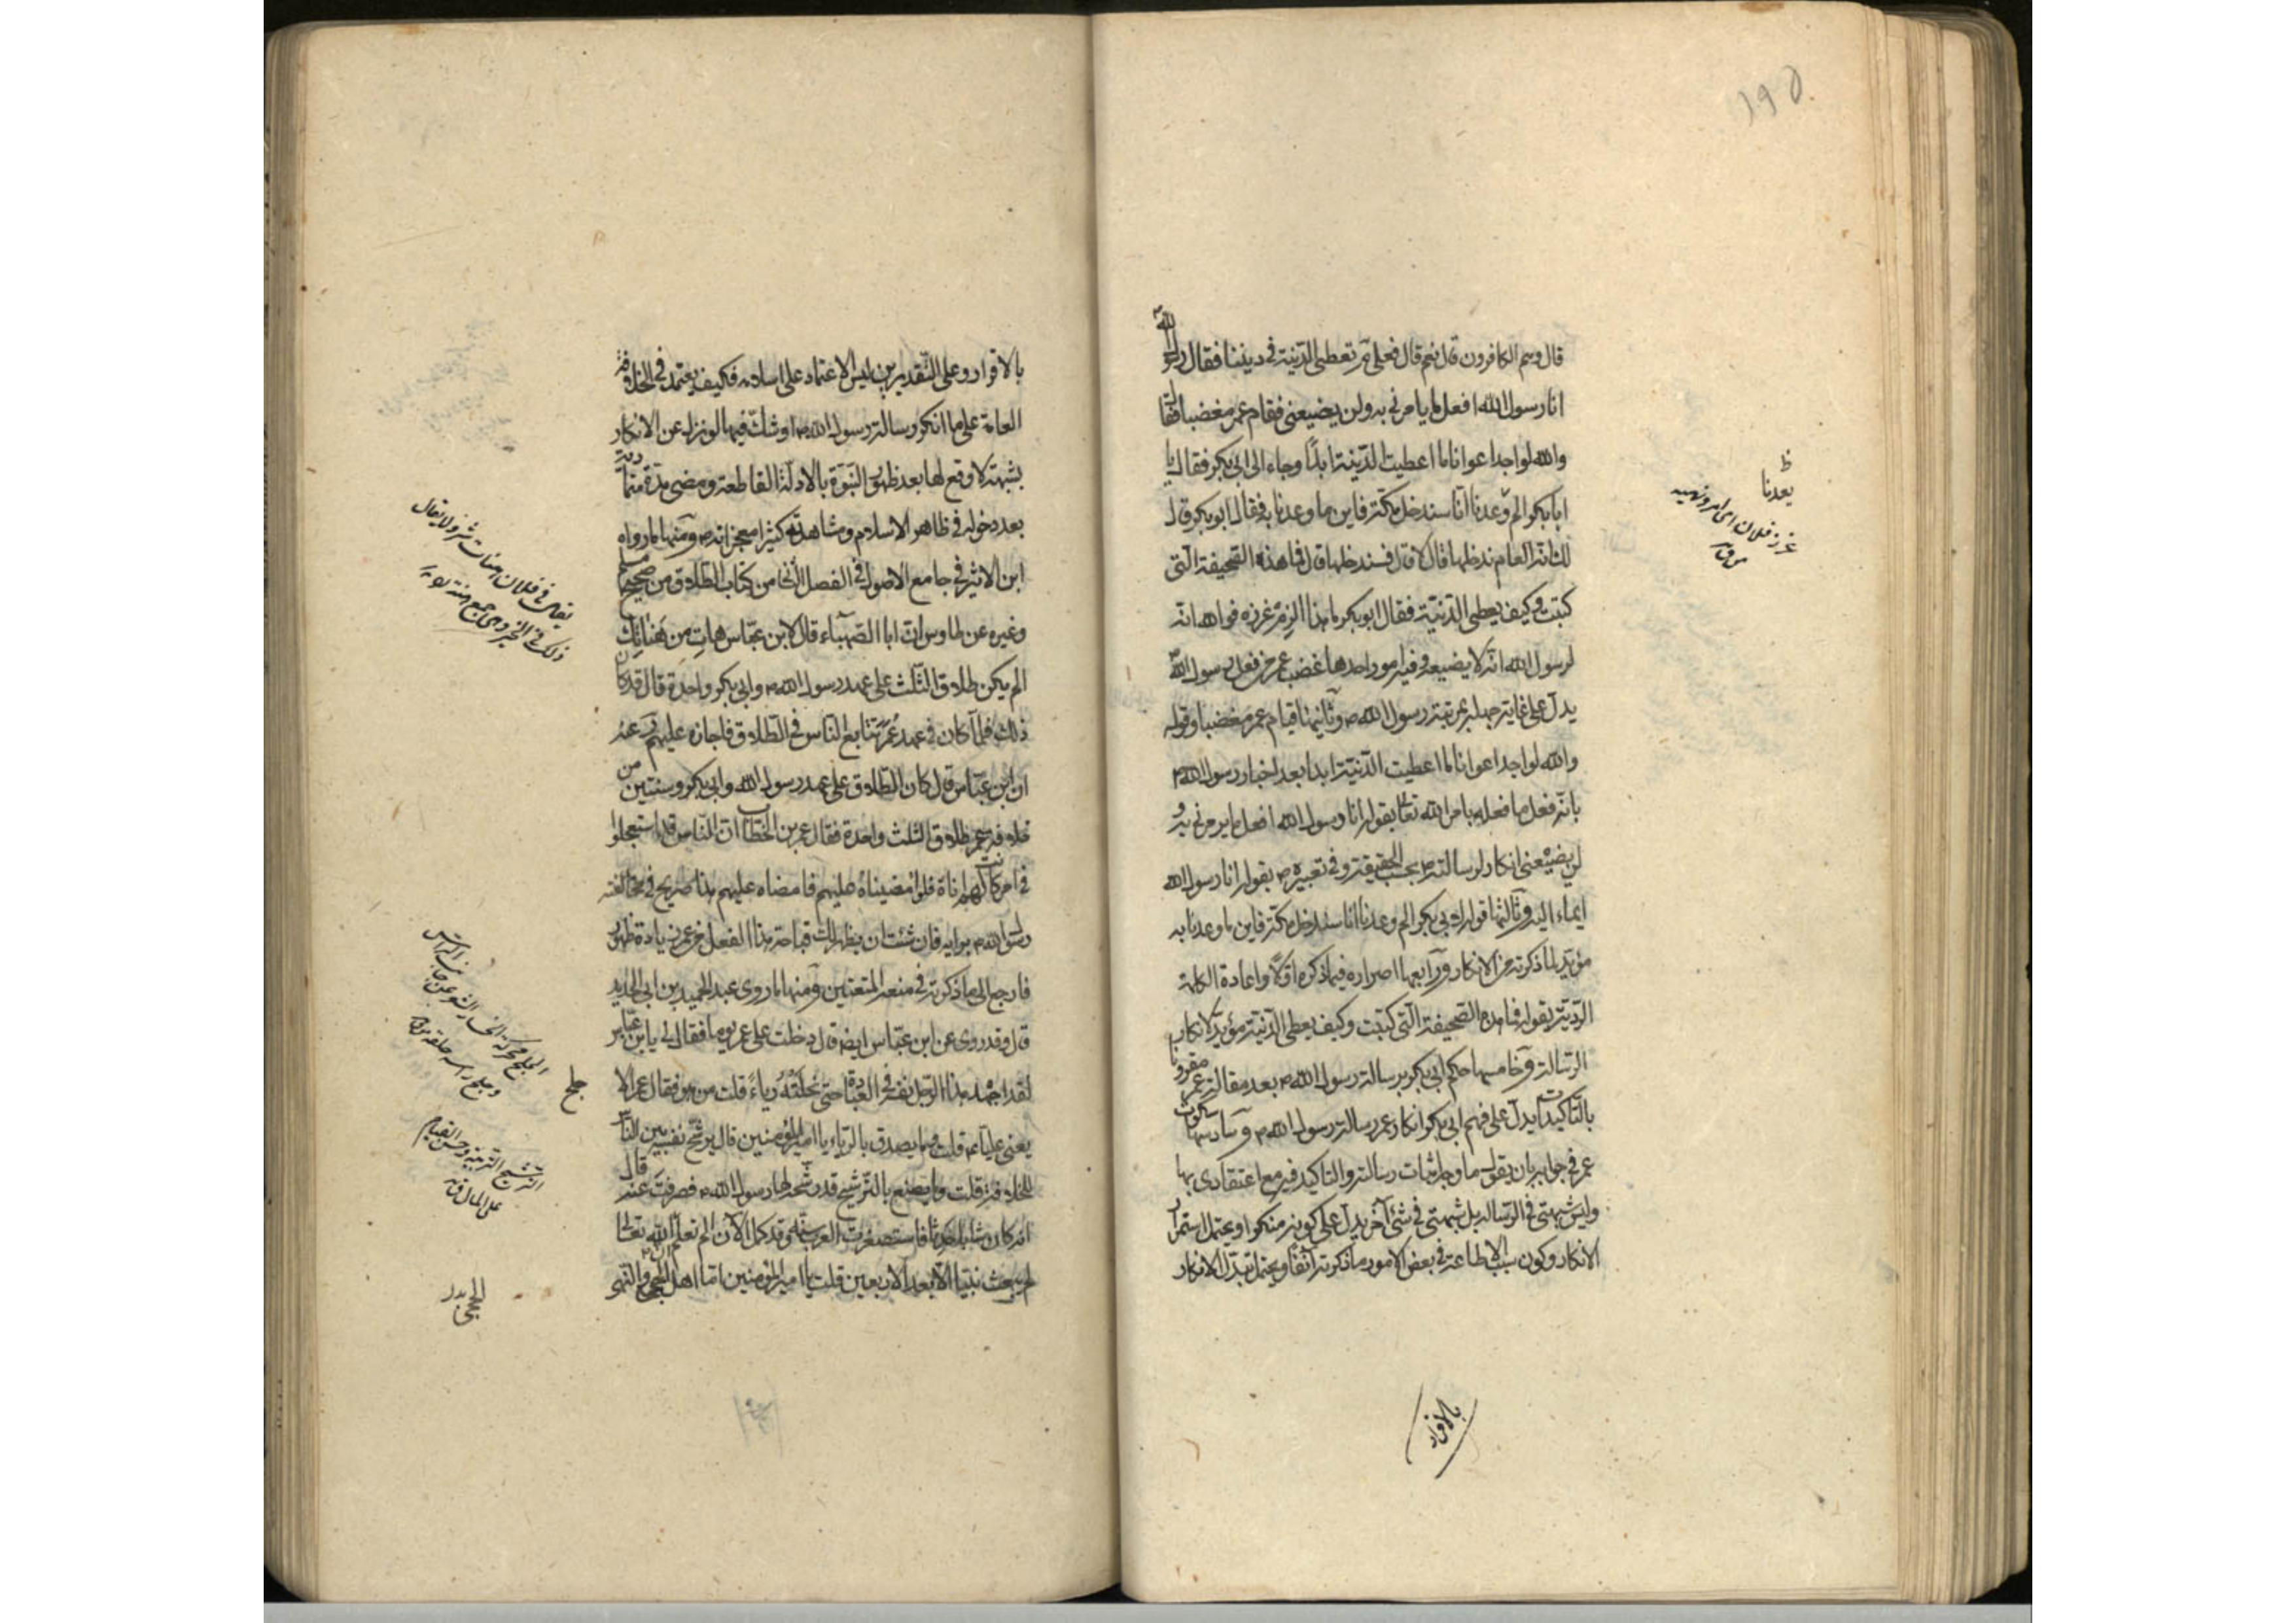 ١٩٥
قال وهم الكافرون قال نعم قال فعلى م تعطى الدنية فى ديننا فقال رسول الله
انا رسول الله افعل ما يامرنى به ولن يضيعنى فقام عمر مغضبا وقال
والله لو اجد اعوانا ما اعطيت الدنية ابدًا وجاء الى ابى بكر فقال يا
ابا بكر الم وعدنا انا سندخل مكة فاين ما وعدنا به فقال ابو بكر قال
لك انه العام ندخلها قال لا قال فسندخلها قال فما هذه الصحيفة التى
كتبت وكيف يعطى الدنية فقال ابو بكر يا هذا الزم غرزه فوالله انه
لرسول الله انه لا يضيعه وفيه امور احدها غضب عمر من فعل رسول الله
يدل على غاية جهله بمرتبة رسول الله ص وثانيها قيام عمر مغضبا وقوله
والله لو اجد اعوانا ما اعطيت الدنية ابدا بعد اخبار رسول الله ص
بانه فعل ما فعله بامر الله تعا بقوله انا رسول الله افعل ما يامرنى به و
لن يضيعنى انكار لرسالته ص بحسب الحقيقة وفى تعبيره ص بقوله انا رسول الله
ايماء اليه وثالثها قوله لابى بكر الم وعدنا انا سندخل مكة فاين ما وعدنا به
مؤيد لما ذكرته من الانكار ورابعها اصراره فيما ذكره اولا واعادة الكلمة
الردية بقوله فما هذه الصحيفة التى كتبت وكيف يعطى الدنية مؤيد لانكار
الرسالة وخامسها حكم ابى بكر برسالة رسول الله ص بعد مقالة عمر مقرونا
بالتاكيدات يدل على فهم ابى بكر انكار عمر رسالة رسول الله ص وسادسها سكوت
عمر فى جوابه بان يقول ما وجه اثبات رسالته والتاكيد فيه مع اعتقادى بها
وليس شبهتى فى الرسالة بل شبهتى فى شئ آخر يدل على كونه منكرا ويحتمل استمرار
الانكار وكون سبب الاطاعة فى بعض الامور ما ذكرته آنفا ويحتمل تبدل الانكار
بالاقرار
ظ
يعدنا
غرز فلان اى امره ونهيه
ق
بالاقرار وعلى التقديرين ليس الاعتماد على اسلامه فكيف يعتمد فى الخلافة
العامة على من انكر رسالة رسول الله ص او شك فيها لو نزل عن الانكار
بشبهة لا وقع لها بعد ظهور النبوة بالادلة القاطعة ومضى مدة متمادية
بعد دخوله فى ظاهر الاسلام ومشاهدته كثيرا من معجزاته ص ومنها ما رواه
ابن الاثير فى جامع الاصول فى الفصل الثانى من كتاب الطلاق من صحيح مسلم
وغيره عن طاوس ان ابا الصهباء قال لابن عباس هات من هناتك
الم يكن طلاق الثلث على عهد رسول الله ص وابى بكر واحدة قال قد كان
ذلك فلما كان فى عهد عمر تتابع الناس فى الطلاق فاجازه عليهم وعنه
ان ابن عباس قال كان الطلاق على عهد رسول الله وابى بكر وسنتين من
خلافة عمر طلاق الثلث واحدة فقال عمر بن الخطاب ان الناس قد استعجلوا
فى امر كانت لهم اناة فلو امضيناه عليهم فامضاه عليهم هذا صريح فى مخالفة
رسول الله ص برايه فان شئت ان يظهر لك قباحة هذا الفعل من عمر زيادة ظهور
فارجع الى ما ذكرته فى منعه المتعتين ومنها ما روى عبد الحميد بن ابى الحديد
قال وقد روى عن ابن عباس ايضا قال دخلت على عمر يوما فقال لى يا ابن عباس
لقد اجهد هذا الرجل نفسه فى العبادة حتى نحلته رياءً قلت من هو فقال عمر الا
يعنى عليا ع قلت وما يصدق بالرياء يا امير المؤمنين قال يرشح نفسه بين الناس
للخلافة قلت وما يصنع بالترشيح قد رشحه لها رسول الله ص فصرفت عنه قال
انه كان شابا حدثا فاستصغرت العرب سنه وقد كمل الآن الم تعلم ان الله تعالى
لم يبعث نبيا الا بعد الاربعين قلت يا امير المؤمنين اما اهل الحجى والنهى
يقال فى فلان هنات شر ولا يقال
ذلك فى الخير وهى جمع هنة
جلح
الترشيح التربية وحسن القيام
على المال ق
الحجى